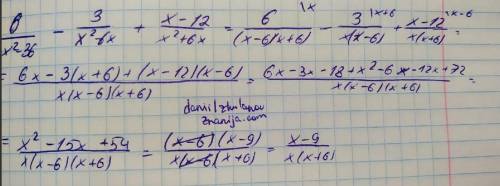 6/(x²-36) - 3/(x²-6x) + (x-12)/(x²+6x) = 6/((x-6)(x+6)) |x - 3/(x(x-6)) |x+6 + (x-12)/(x(x+6)) |x-6 =
= (6x-3(x+6)+(x-12)(x-6))/(x(x-6)(x+6)) = (6x-3x-18+x²-6x-12x+72)/(x(x-6)(x+6)) =
znanija.com
= (x²-15x+54)/(x(x-6)(x+6)) = ((x-6)(x-9))/(x(x-6)(x+6)) = (x-9)/(x(x+6))